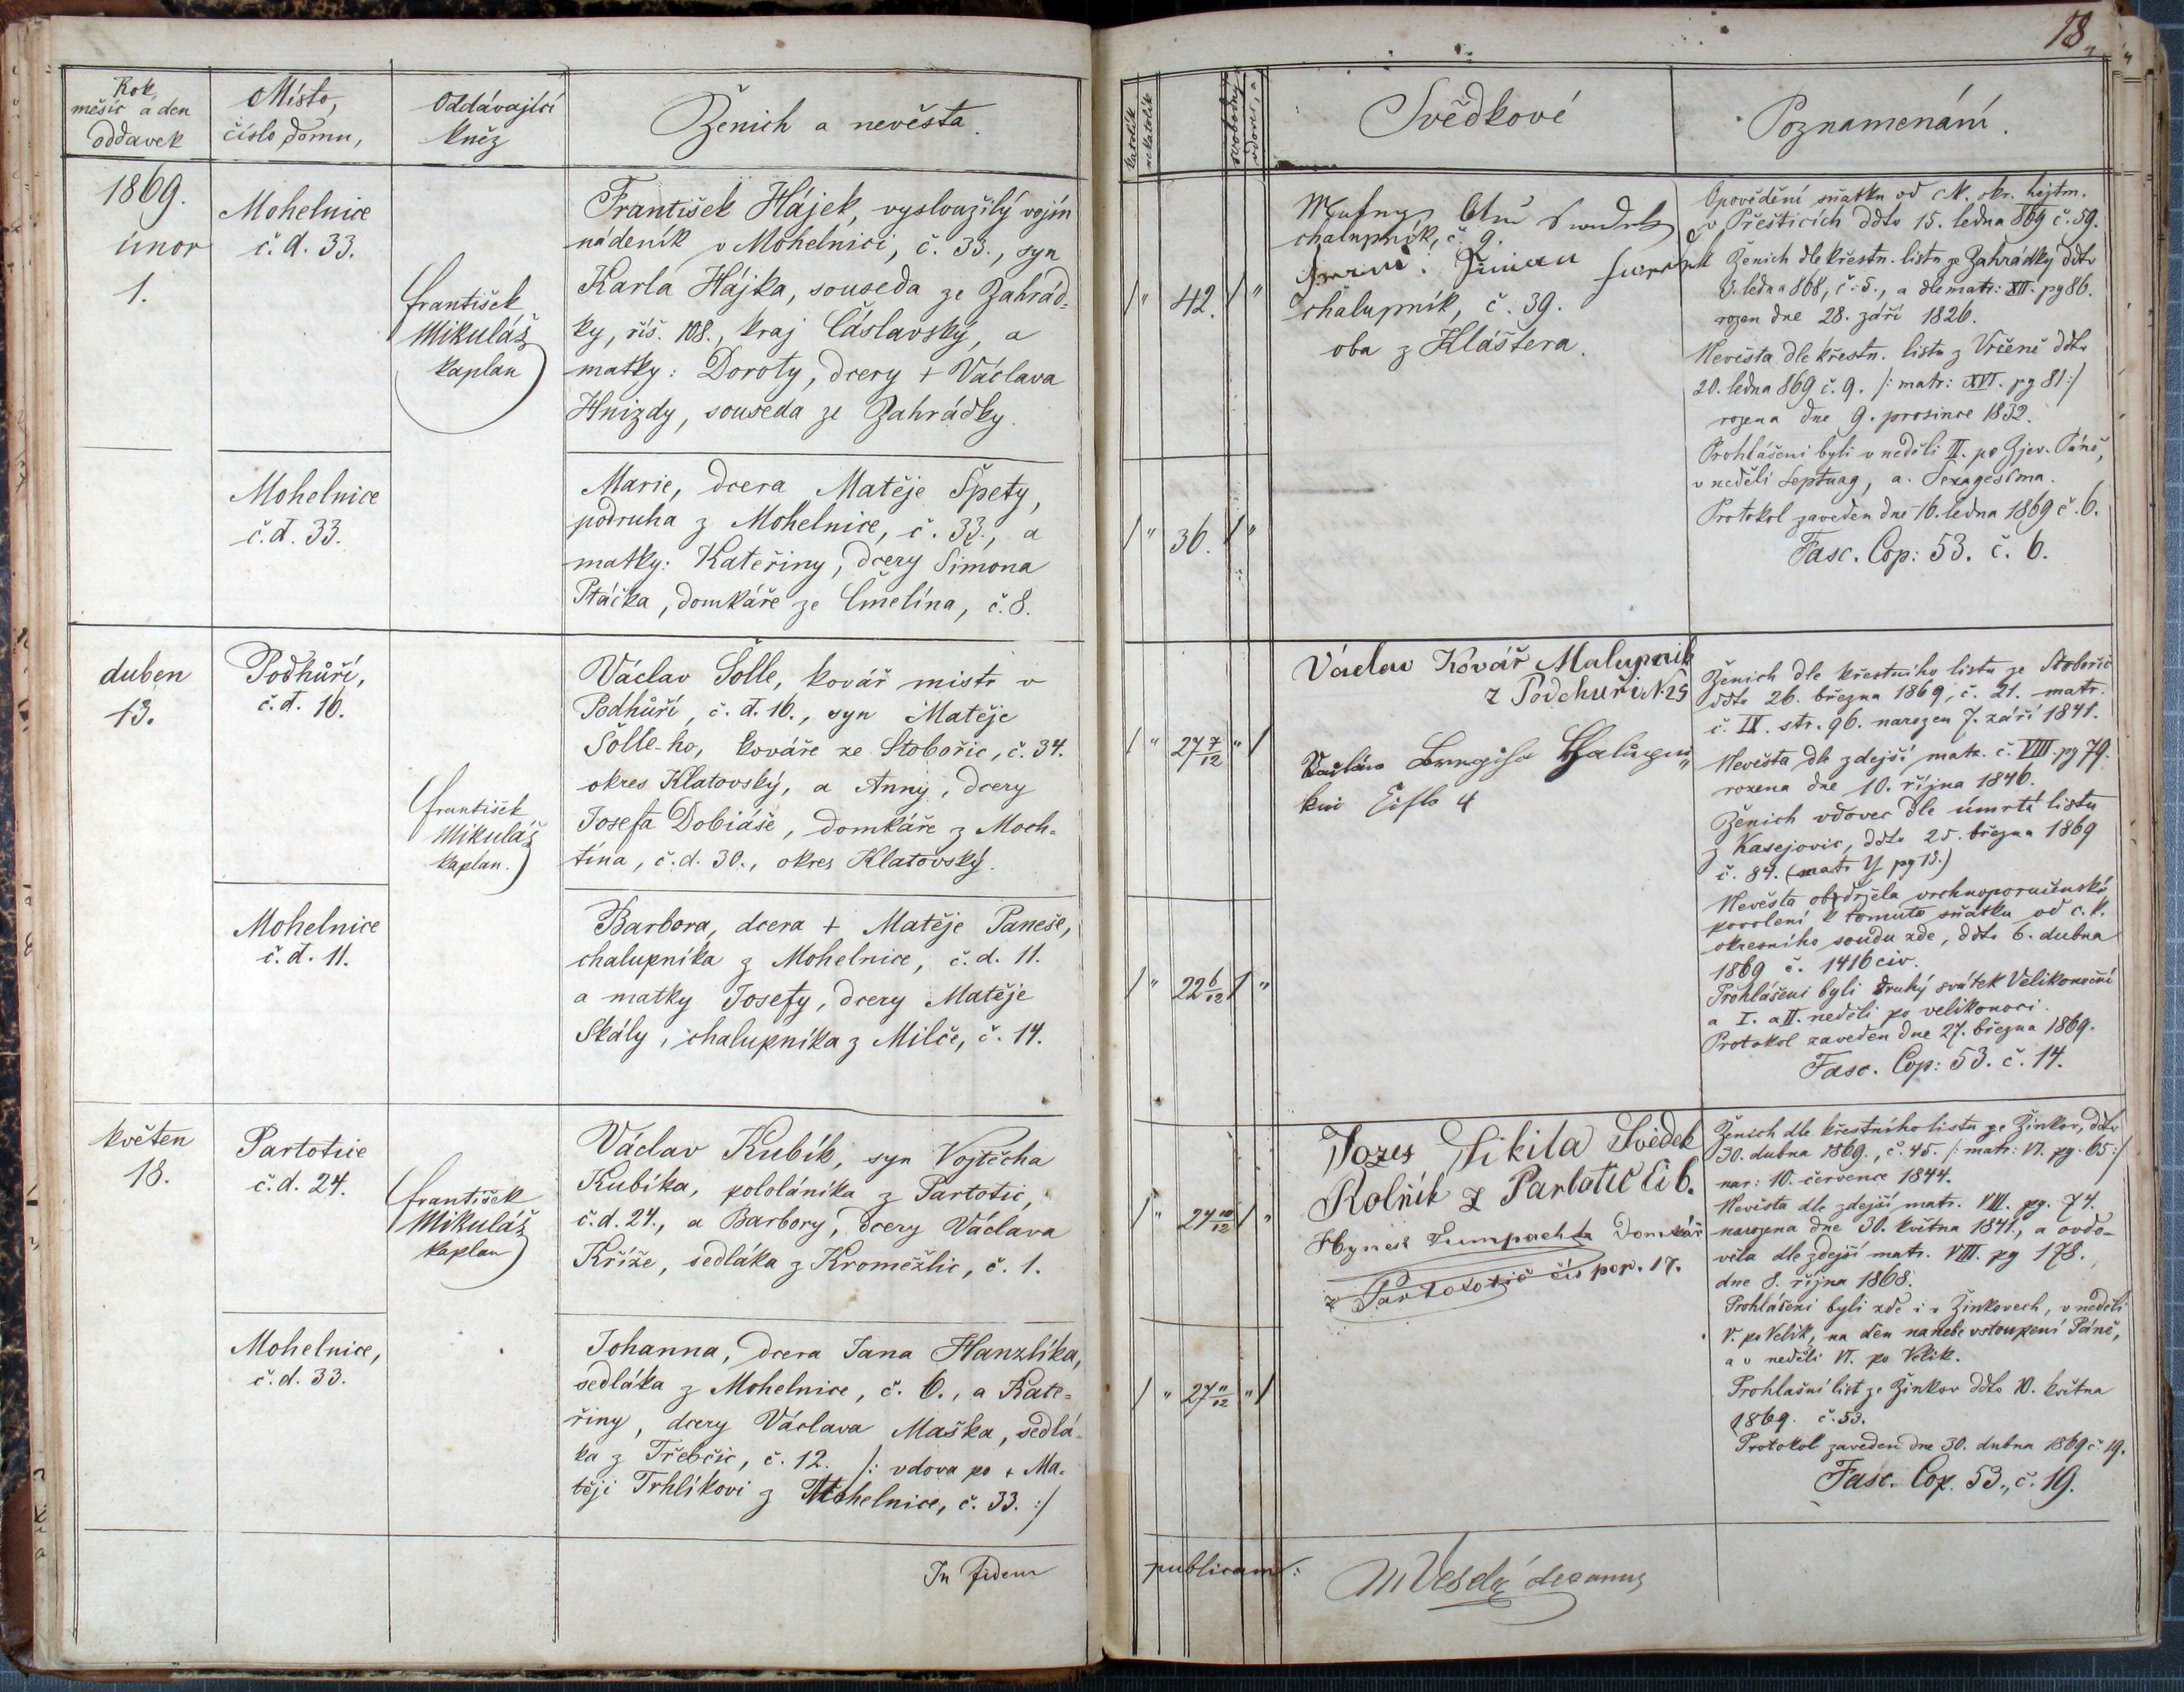 18.
Rok,
měsíc a den
oddavek
Místo,
číslo domu,
Oddávající
kněz
Ženich a nevěsta.
katolík
nekatolík
svobodný
vdovec, a
Svědkové
Poznamenání.
1869.
únor
1.
Mohelnice
č. d. 33.
František
Mikuláš
kaplan
František Hájek, vysloužilý vojín
nádeník v Mohelnici, č. 33., syn
Karla Hájka, souseda ze Zahrád-
ky, čís. 108., kraj Čáslavský, a
matky: Doroty, dcery + Václava
Hnizdy, souseda ze Zahrádky.
1 " 42. 1 "
chalupník, č. 9.
chalupník, č. 39.
oba z Kláštera.
Opovědění sňatku od c.k. okr. hejtm.
v Přešticích ddto 15. ledna 869 č. 59.
Ženich dle křestn. listu ze Zahrádky ddto
ledna 868, č. 5., a dle matr: XII. pg 86.
rozen dne 28. září 1826.
Nevěsta dle křestn. listu z Vrčeně ddto
20. ledna 869 č. 9. /: matr: XVI. pg 81 :/
rozena dne 9. prosince 1832.
Prohlášeni byli v neděli II. po Zjev. Páně,
v neděli Septuag, a. Sexagesima.
Protokol zaveden dne 16. ledna 1869 č. 6.
Fasc. Cop: 53. č. 6.
Mohelnice
č. d. 33.
Marie, dcera Matěje Špety,
podruha z Mohelnice, č. 33., a
matky: Kateřiny, dcery Šimona
Ptáčka, domkáře ze Čmelína, č. 8.
1 " 36. 1 "
duben
13.
Podhůří,
č. d. 16.
František
Mikuláš
kaplan.
Václav Šolle, kovář mistr v
Podhůří, č. d. 16., syn Matěje
Šolle-ho, kováře ze Stobořic, č. 34.
okres Klatovský, a Anny, dcery
Josefa Dobiáše, domkáře z Moch-
tína, č. d. 30., okres Klatovský.
1 " 27 7/12 " 1
Václav Kovář
z Podchuři N. 25
Číslo 4
Ženich dle křestního listu ze Stobořic
ddto 26. března 1869, č. 21. matr.
č. IV. str. 96. narozen 7. září 1841.
Nevěsta dle zdejší matr. č. VIII. pg 79.
rozena dne 10. října 1846.
Ženich vdovec dle úmrtí listu
z Kasejovic, ddto 25. března 1869
č. 84. (matr pg 13.)
Nevěsta obdržela vrchnoporučenské
povolení k tomuto sňatku od c. k.
okresního soudu zde, ddto 6. dubna
1869 č. 1416 civ.
Prohlášeni byli druhý svátek Velikonoční
a I. a II. neděli po velikonoci.
Protokol zaveden dne 27. března 1869.
Fasc. Cop: 53. č. 14.
Mohelnice
č. d. 11.
Barbora, dcera + Matěje Paneše,
chalupníka z Mohelnice, č. d. 11.
a matky Josefy, dcery Matěje
Skály, chalupníka z Milče, č. 14.
1 " 22 6/12 1 "
květen
18.
Partotice
č. d. 24.
František
Mikuláš
kaplan
Václav Kubík, syn Vojtěcha
Kubíka, pololáníka z Partotic,
č. d. 24., a Barbory, dcery Václava
Kříže, sedláka z Kroměžlic, č. 1.
1 " 24 10/12 1 "
Jozes Sikita Svědek
Rolník z Partotic Či 6.
Hynek Domkář
z Partototic čís pop. 17.
Ženich dle křestního listu ze Žinkov, ddto
30. dubna 1869., č. 45. /: matr: VI. pg. 65 :/
nar: 10. července 1844.
Nevěsta dle zdejší matr. VIII. pg. 74.
narozena dne 30. května 1841., a ovdo-
věla dle zdejší matr. VIII. pg 178.
dne 8. října 1868.
Prohlášeni byli zde i v Žinkovech, v neděli
V. po Velik, na den na nebe vstoupení Páně,
a v neděli VI. po Velik.
Prohlašní list ze Žinkov ddto 10. května
1869. č. 53.
Protokol zaveden dne 30. dubna 1869 č 19.
Fasc. Cop. 53., č. 19.
Mohelnice,
č. d. 33.
Johanna, dcera Jana Hanzlíka,
sedláka z Mohelnice, č. 6., a Kate-
řiny, dcery Václava Maška, sedlá-
ka z Třebčic, č. 12. /: vdova po + Ma-
těji Trhlíkovi z Mohelnice, č. 33. :/
1 " 27 11/12 " 1
In fidem publicam:
M Veselý decanus